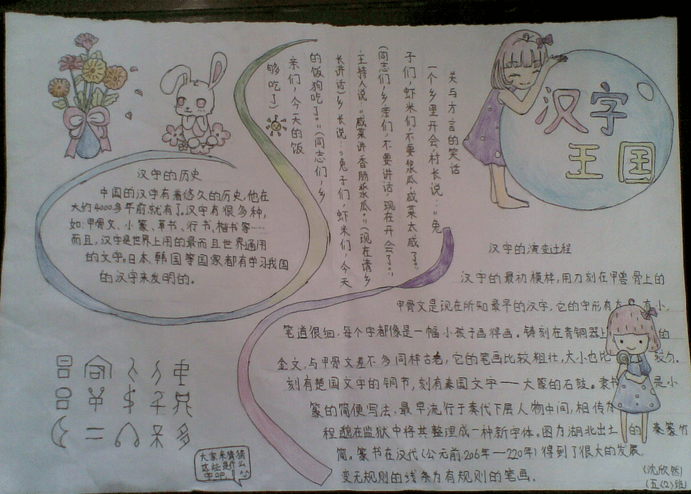 汉字
王国
关与方言的笑话
一个乡里开会,村长说:“兔
子们,虾米们,不要浆瓜,咸菜太咸了。”
(同志们,乡亲们,不要讲话,现在开会了。)
主持人说:“咸菜请香肠浆瓜。”(现在请乡
长讲话)乡长说:“兔子们,虾米们,今天
的饭狗吃了。”(同志们,乡
亲们,今天的饭
够吃了)
汉字的历史
中国的汉字有着悠久的历史,他在
大约4000多年前就有了,汉字有很多种,
如:甲骨文、小篆、草书、行书、楷书等…
而且,汉字是世界上用的最而且世界通用
的文字,日本、韩国等国家都有学习我国
的汉字来发明的。
汉字的演变过程
汉字的最初模样,用刀刻在甲兽骨上的
甲骨文是现在所知最早的汉字,它的字形有 小,
笔道很细,每个字都像是一幅小孩子画得画。铸刻在青铜器上 的
金文,与甲骨文差不多同样古老,它的笔画比较粗壮,大小也比
刻有楚国文字的铜节,刻有秦国文字——大篆的石鼓。隶书 是小
篆的简便写法,最早流行于秦代下层人物中间,相传
程邈在监狱中将其整理成一种新字体。图为湖北出土的 秦篆竹
简。篆书在汉代(公元前206年—220年)得到了很大的发展,
变无规则的线条为有规则的笔画。
大家来猜猜
这些是什么
字吧
(沈欣然)
(五(2)班)